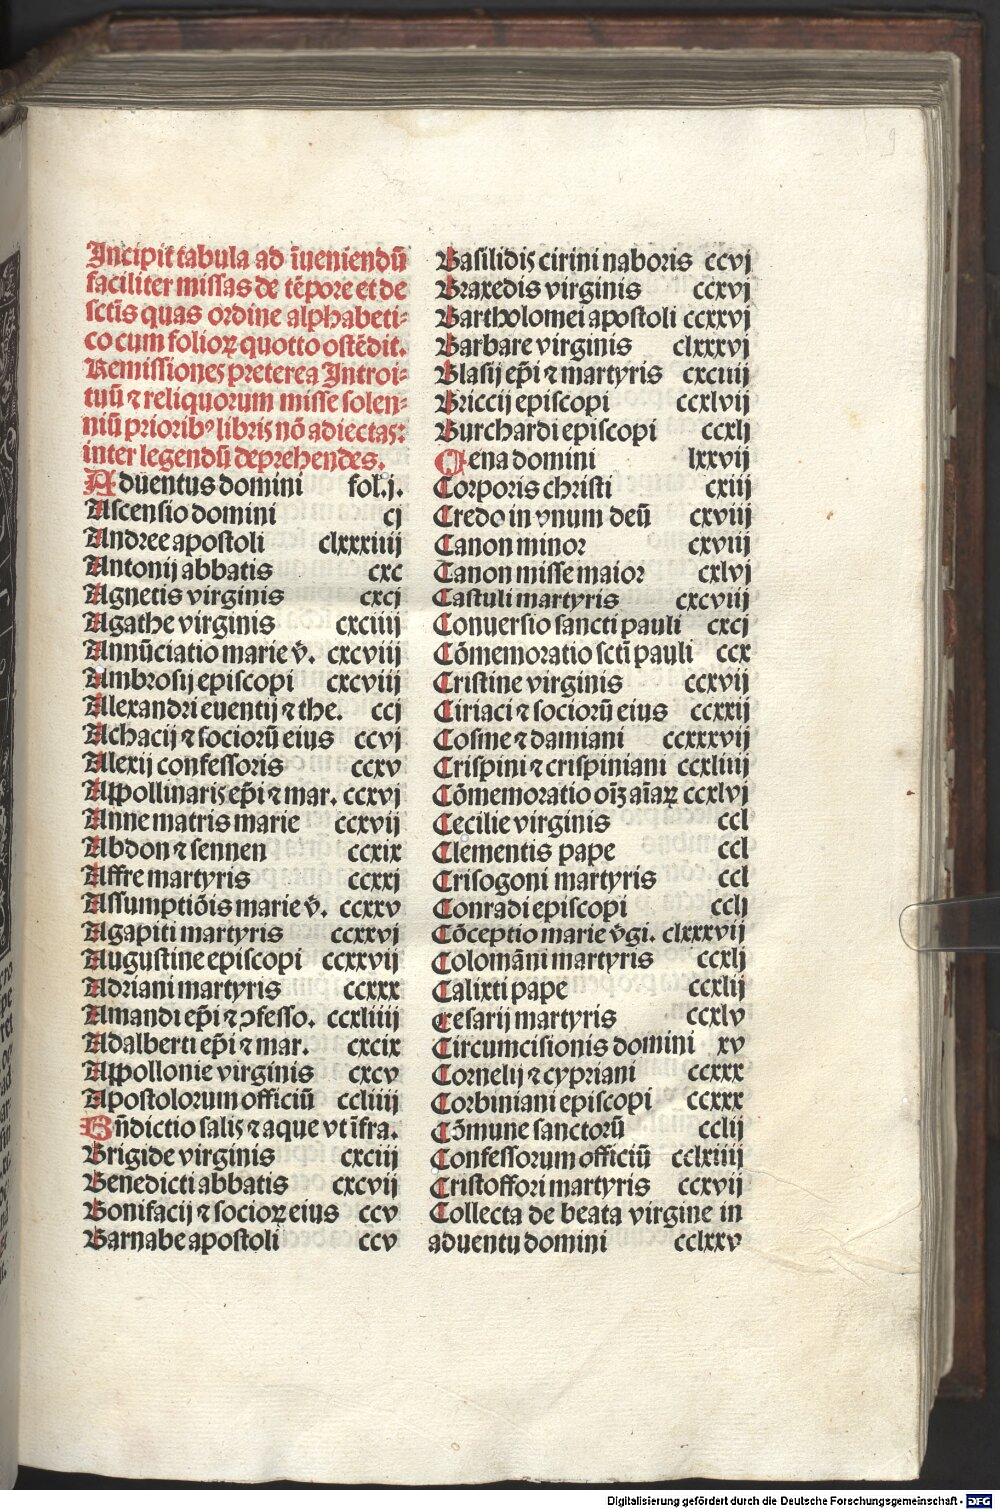 Incipit tabula ad īueniendū
faciliter missas de tēpore et de
sctīs quas ordine alphabeti-
co cum folioꝝ quotto ostēdit.
Remissiones preterea Introi-
tuū ⁊ reliquorum misse solen-
niū prioribꝰ libris nō adiectas:
inter legendū deprehendes.
Aduentus domini fol. j.
Ascensio domini cj
Andree apostoli clxxxiiij
Antonij abbatis cxc
Agnetis virginis cxcj
Agathe virginis cxciiij
Annūciatio marie v̄. cxcviij
Ambrosij episcopi cxcviij
Alexandri euentij ⁊ the. ccj
Achacij ⁊ sociorū eius ccvj
Alexij confessoris ccxv
Appollinaris ep̄i ⁊ mar. ccxvj
Anne matris marie ccxvij
Abdon ⁊ sennen ccxix
Affre martyris ccxxj
Assumptiōis marie v̄. ccxxv
Agapiti martyris ccxxvj
Augustine episcopi ccxxvij
Adriani martyris ccxxx
Amandi ep̄i ⁊ ꝯfesso. ccxliiij
Adalberti ep̄i ⁊ mar. cxcix
Appollonie virginis cxcv
Apostolorum officiū ccliiij
Bn̄dictio salis ⁊ aque vt īfra.
Brigide virginis cxciij
Benedicti abbatis cxcvij
Bonifacij ⁊ socioꝝ eius ccv
Barnabe apostoli ccv
Basilidis cirini naboris ccvj
Braxedis virginis ccxvj
Bartholomei apostoli ccxxvj
Barbare virginis clxxxvj
Blasij ep̄i ⁊ martyris cxciiij
Briccij episcopi ccxlvij
Burchardi episcopi ccxlj
Cena domini lxxvij
Corporis christi cxiij
Credo in vnum deū cxviij
Canon minor cxviij
Canon misse maior cxlvj
Castuli martyris cxcviij
Conuersio sancti pauli cxcj
Cōmemoratio sctī pauli ccx
Cristine virginis ccxvij
Ciriaci ⁊ sociorū eius ccxxij
Cosme ⁊ damiani ccxxxvij
Crispini ⁊ crispiniani ccxliiij
Cōmemoratio oīꝫ aīaꝝ ccxlvj
Cecilie virginis ccl
Clementis pape ccl
Crisogoni martyris ccl
Conradi episcopi cclj
Cōceptio marie v̄gi. clxxxvij
Colomāni martyris ccxlj
Calixti pape ccxlij
Cesarij martyris ccxlv
Circumcisionis domini xv
Cornelij ⁊ cypriani ccxxx
Corbiniani episcopi ccxxx
Cōmune sanctorū cclij
Confessorum officiū cclxiiij
Cristoffori martyris ccxvij
Collecta de beata virgine in
aduentu domini cclxxv
9
Digitalisierung gefördert durch die Deutsche Forschungsgemeinschaft - DFG